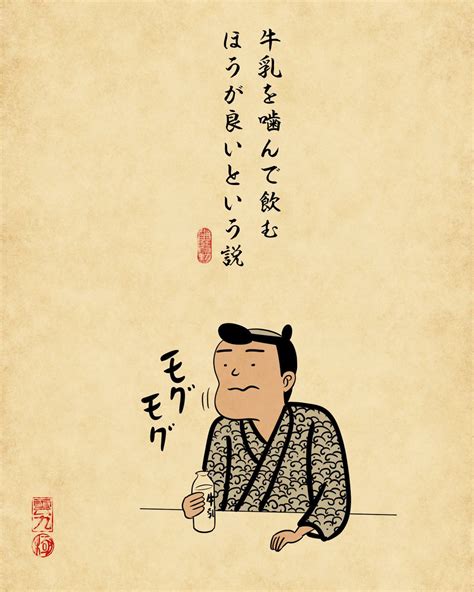 牛乳を噛んで飲む
ほうが良いという説
モグ
モグ
牛乳